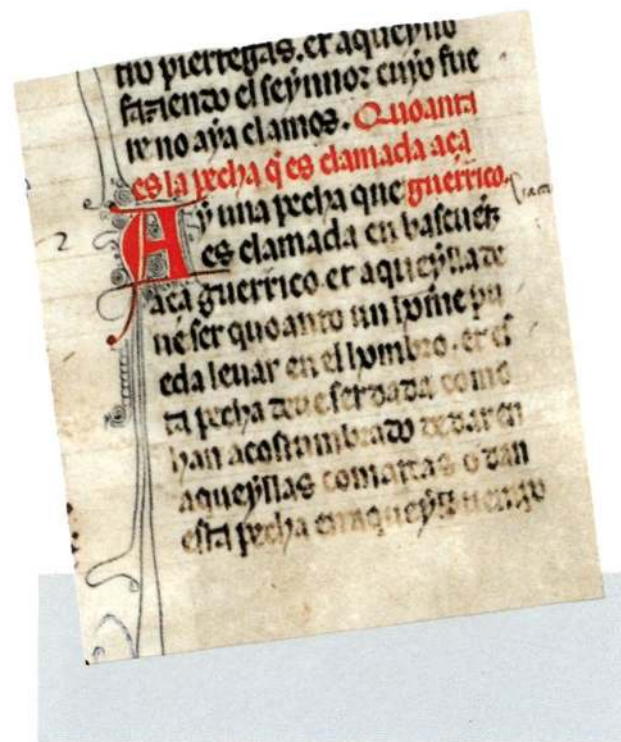 tro piertegas. et aqueyllo
faziendo el seynnor cuyo fue
te no aya clamos. Quoanta
es la pecha q̃ es clamada aça
Ay una pecha que guerrico.
es clamada en bascuenz
aça guerrico. et aqueylla de
ue ser quoanto un hom̃e pu
eda leuar en el hombro. et es
ta pecha deue ser dada como
han acostumbrado de dar en
aqueyllas comarcas o dan
esta pecha en aqueyll tiempo